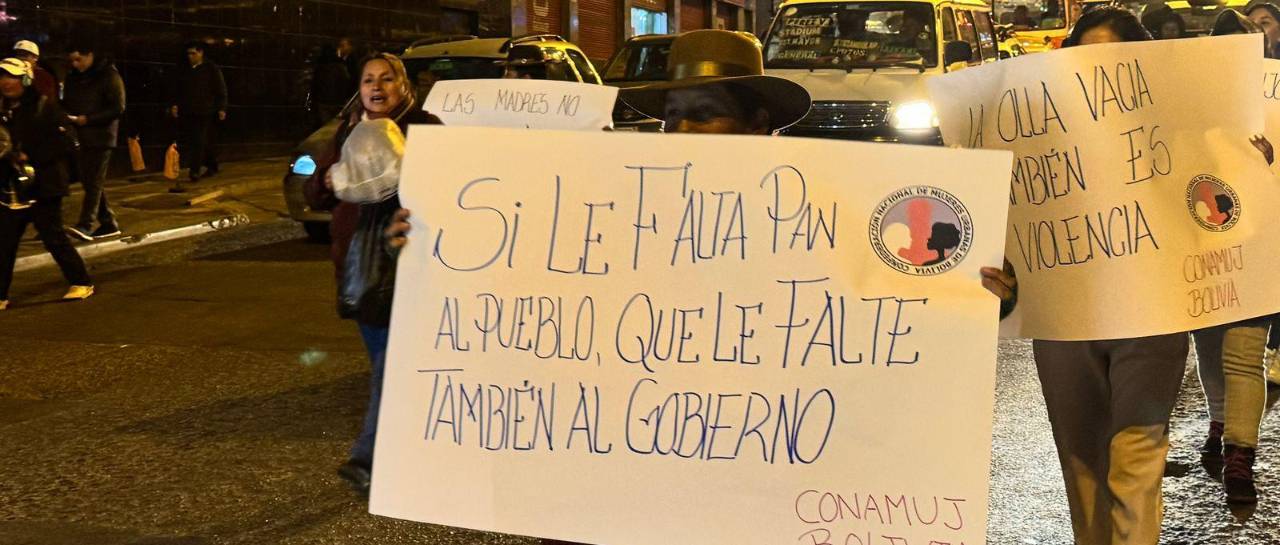 LAS MADRES NO
SI LE FALTA PAN
AL PUEBLO, QUE LE FALTE
TAMBIÉN AL GOBIERNO
CONFEDERACIÓN NACIONAL DE MUJERES URBANAS DE BOLIVIA
CONAMUJ
BOLIVIA
OLLA VACIA
TAMBIÉN ES
VIOLENCIA
CONAMUJ
BOLIVIA
STADIUM